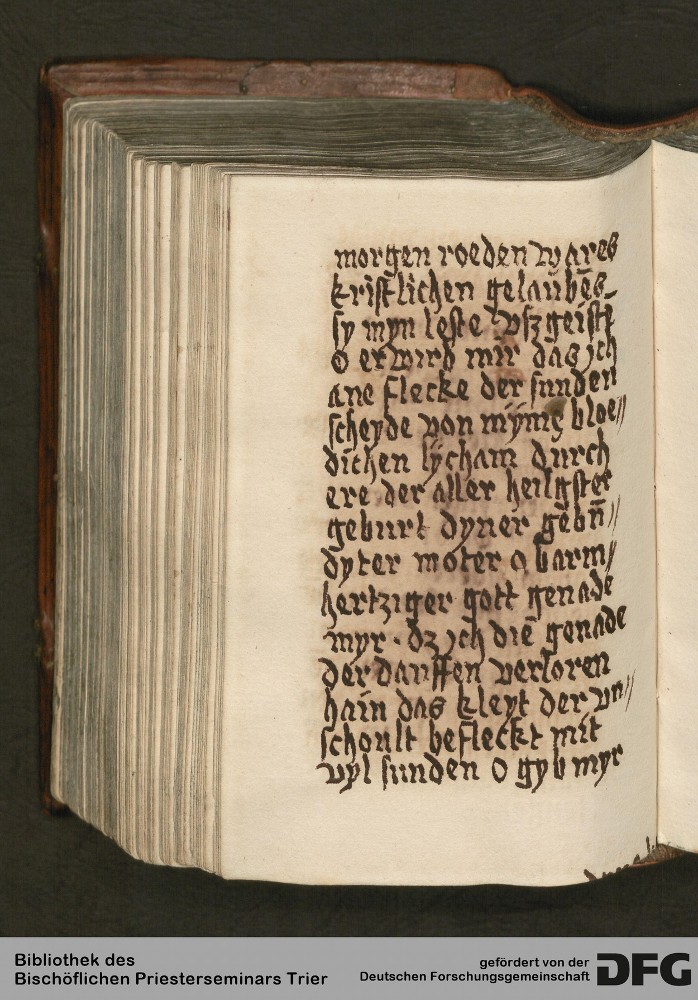 morgen roeden wares
kristlichen gelaubē̄s
sy myn leste vszgeistē
O erwirb mir das ich
ane flecke der sunden
scheyde von mÿmꝫ bloe//
dichen lÿcham durch
ere der aller heilgster
geburt dyner gebn̄//
dyter moter O barm//
hertziger gott genade
myr · dz ich die genade
der dauffen verloren
hain das kleyt der vn//
schoult befleckt mit
vyl sunden O gyb myr
Bibliothek des
Bischöflichen Priesterseminars Trier
gefördert von der
Deutschen Forschungsgemeinschaft
DFG